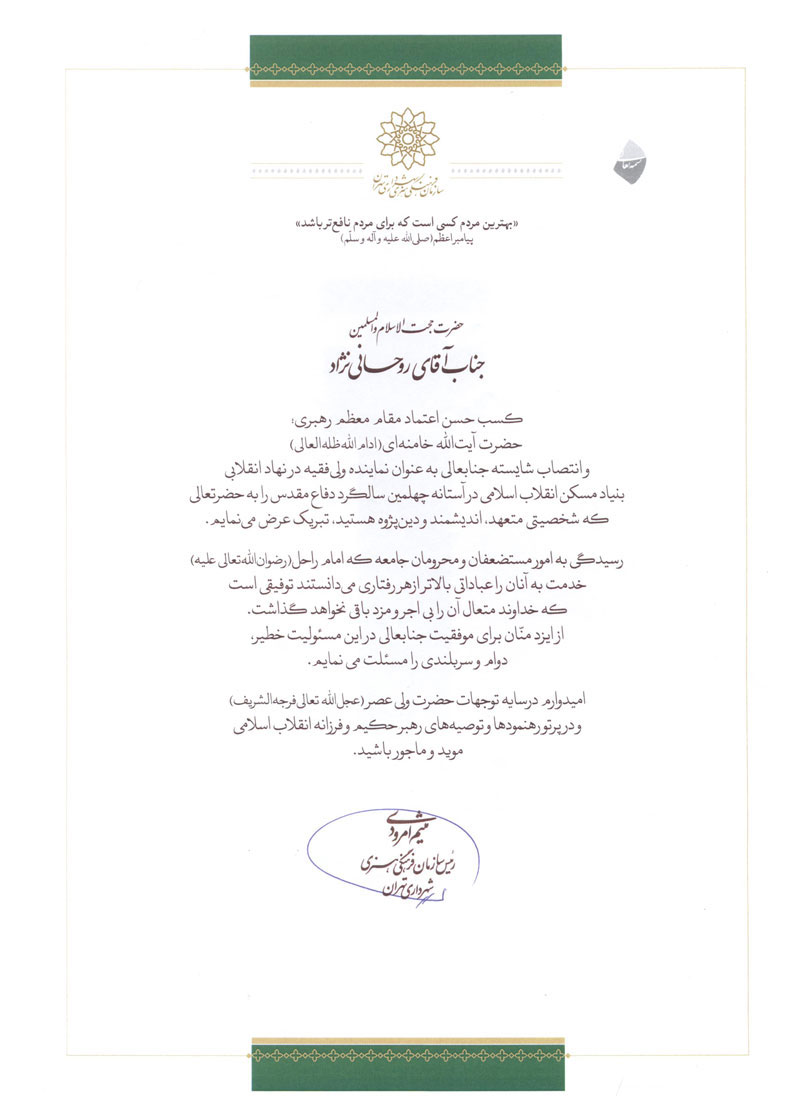 بسمه تعالی
سازمان فرهنگی هنری شهرداری تهران
«بهترین مردم کسی است که برای مردم نافع‌تر باشد»
پیامبر اعظم(صلی الله علیه و آله و سلّم)
حضرت حجت الاسلام والمسلمین
جناب آقای روحانی نژاد
کسب حسن اعتماد مقام معظم رهبری؛
حضرت آیت‌الله خامنه‌ای(ادام الله ظله العالی)
و انتصاب شایسته جنابعالی به عنوان نماینده ولی فقیه در نهاد انقلابی
بنیاد مسکن انقلاب اسلامی در آستانه چهلمین سالگرد دفاع مقدس را به حضرتعالی
که شخصیتی متعهد، اندیشمند و دین‌پژوه هستید، تبریک عرض می‌نمایم.
رسیدگی به امور مستضعفان و محرومان جامعه که امام راحل(رضوان الله تعالی علیه)
خدمت به آنان را عباداتی بالاتر از هر رفتاری می‌دانستند توفیقی است
که خداوند متعال آن را بی اجر و مزد باقی نخواهد گذاشت.
از ایزد منّان برای موفقیت جنابعالی در این مسئولیت خطیر،
دوام و سربلندی را مسئلت می نمایم.
امیدوارم در سایه توجهات حضرت ولی عصر(عجل الله تعالی فرجه الشریف)
و در پرتو رهنمودها و توصیه‌های رهبر حکیم و فرزانه انقلاب اسلامی
موید و ماجور باشید.
میثم امرودی
رئیس سازمان فرهنگی هنری
شهرداری تهران